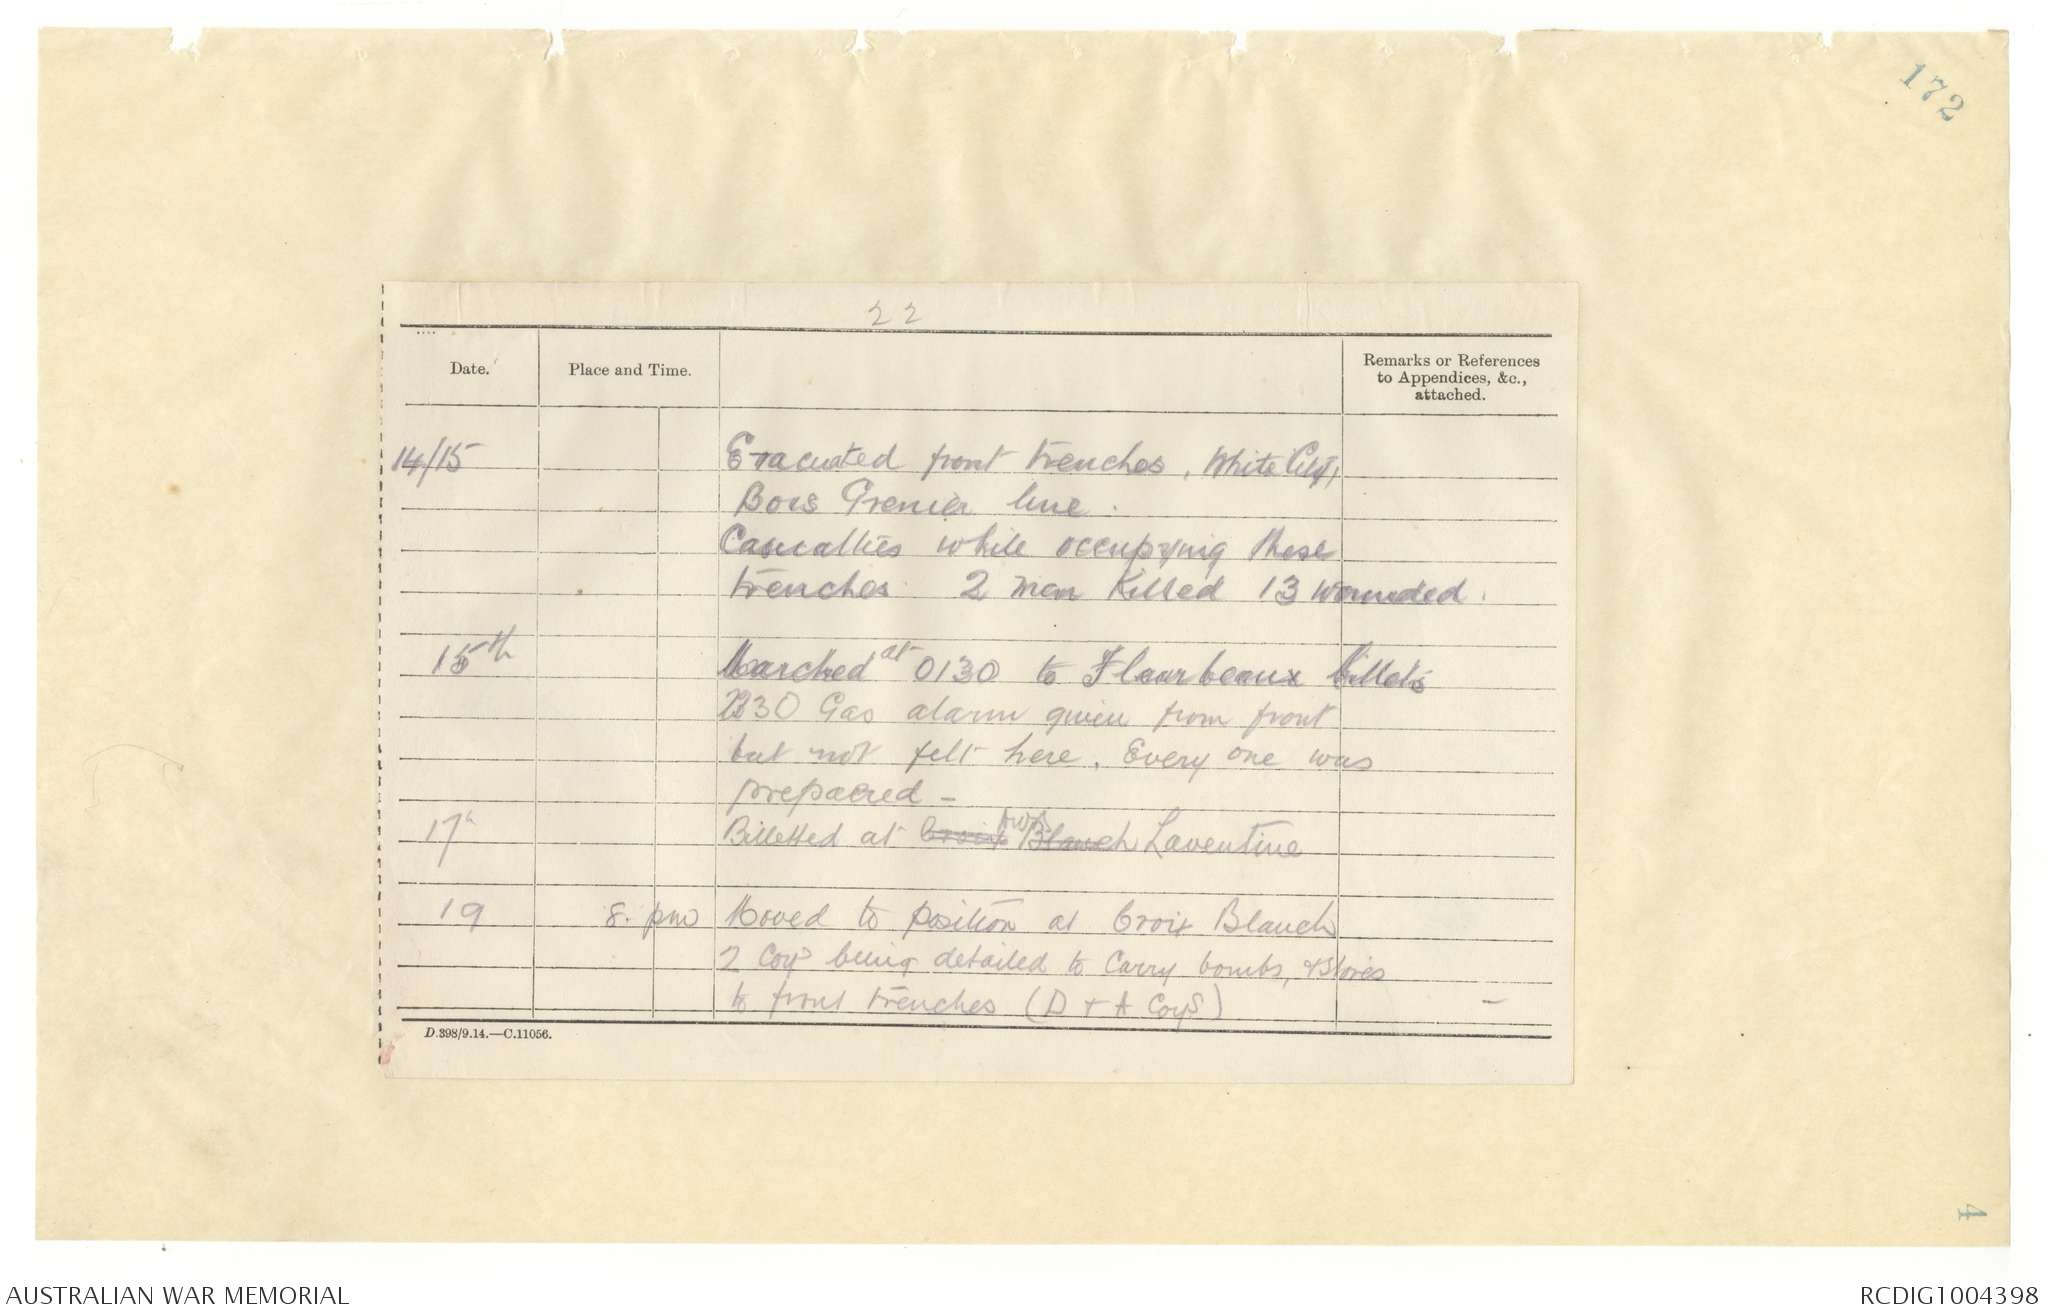 172
22
Date. Place and Time. Remarks or References
to Appendices, &c.,
attached.
14/15 Evacuated front trenches, White City,
Bois Grenier line.
Casualties while occupying these
trenches 2 men Killed 13 wounded.
15th Marched at 0130 to Fleurbeaux billets
2330 Gas alarm given from front
but not felt here. Every one was
prepared -
17h Billetted at Croix Blanch Laventine
19 8. pm Moved to position at Croix Blanch
2 Coys being detailed to carry bombs, & Stores
to front trenches (D + A Coys) -
D.398/9.14.—C.11056.
4
AUSTRALIAN WAR MEMORIAL RCDIG1004398